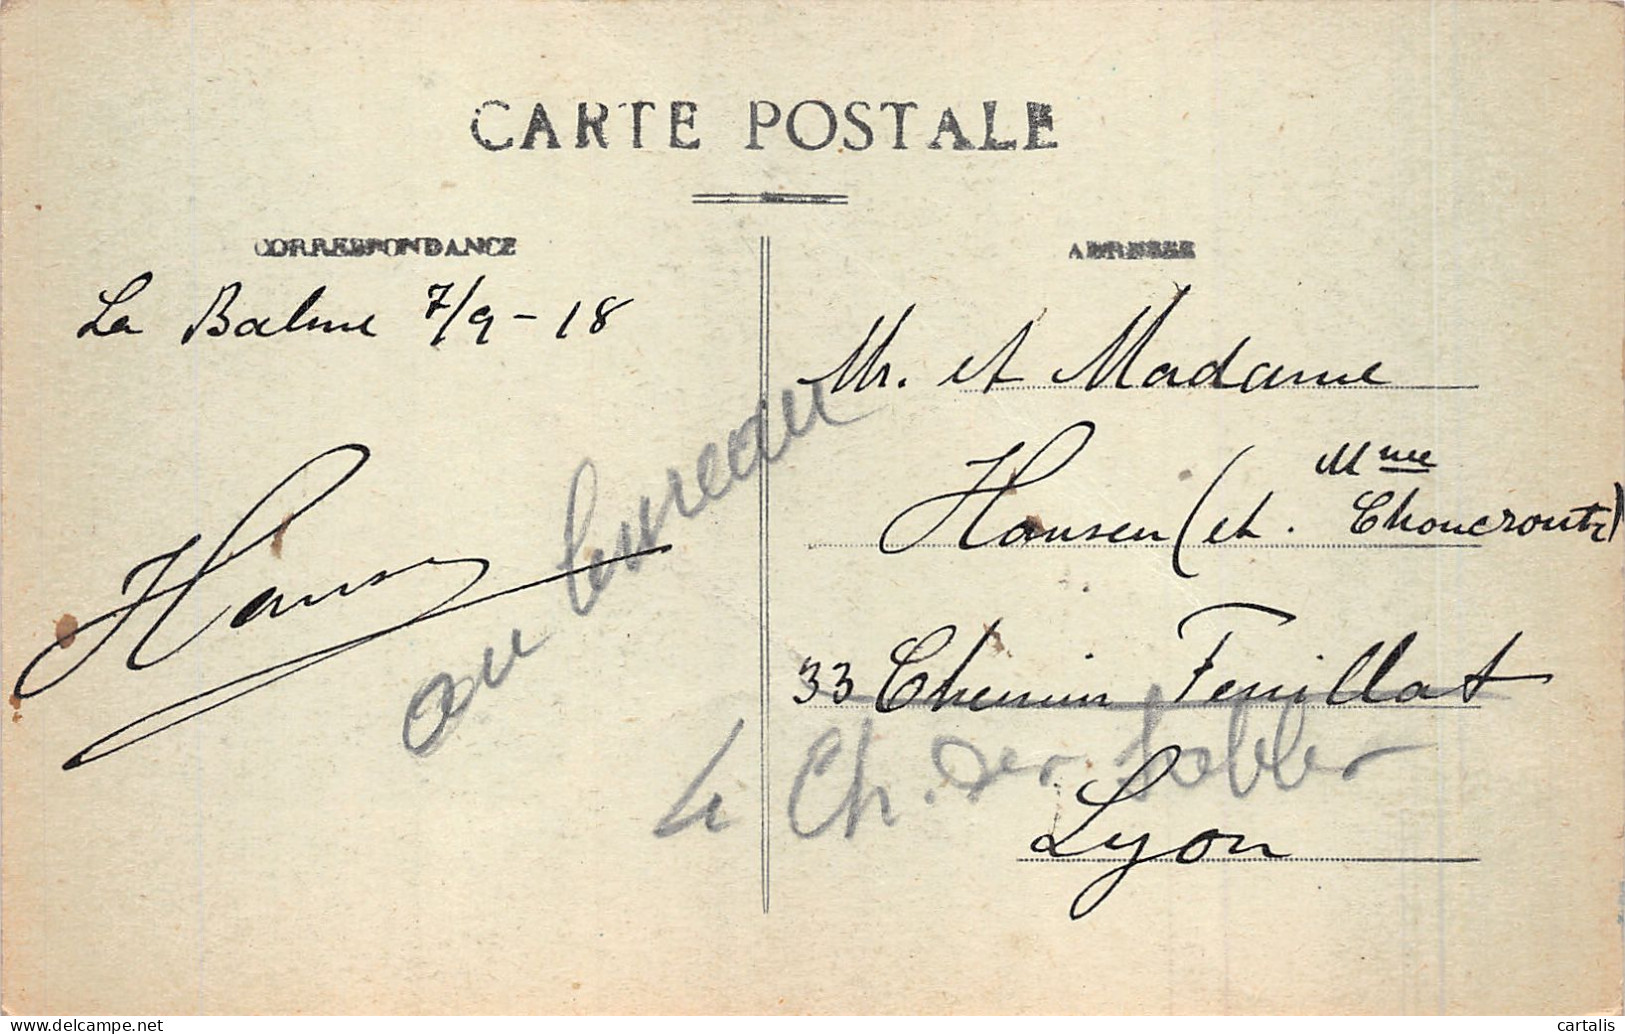 CARTE POSTALE
CORRESPONDANCE
La Balme 7/9-18
Hansen
au bureau
ADRESSE
Mr. et Madame
Hansen (et. Mme Choucroute)
33 Chemin Feuillat
4 Ch.
Lyon
www.delcampe.net
cartalis